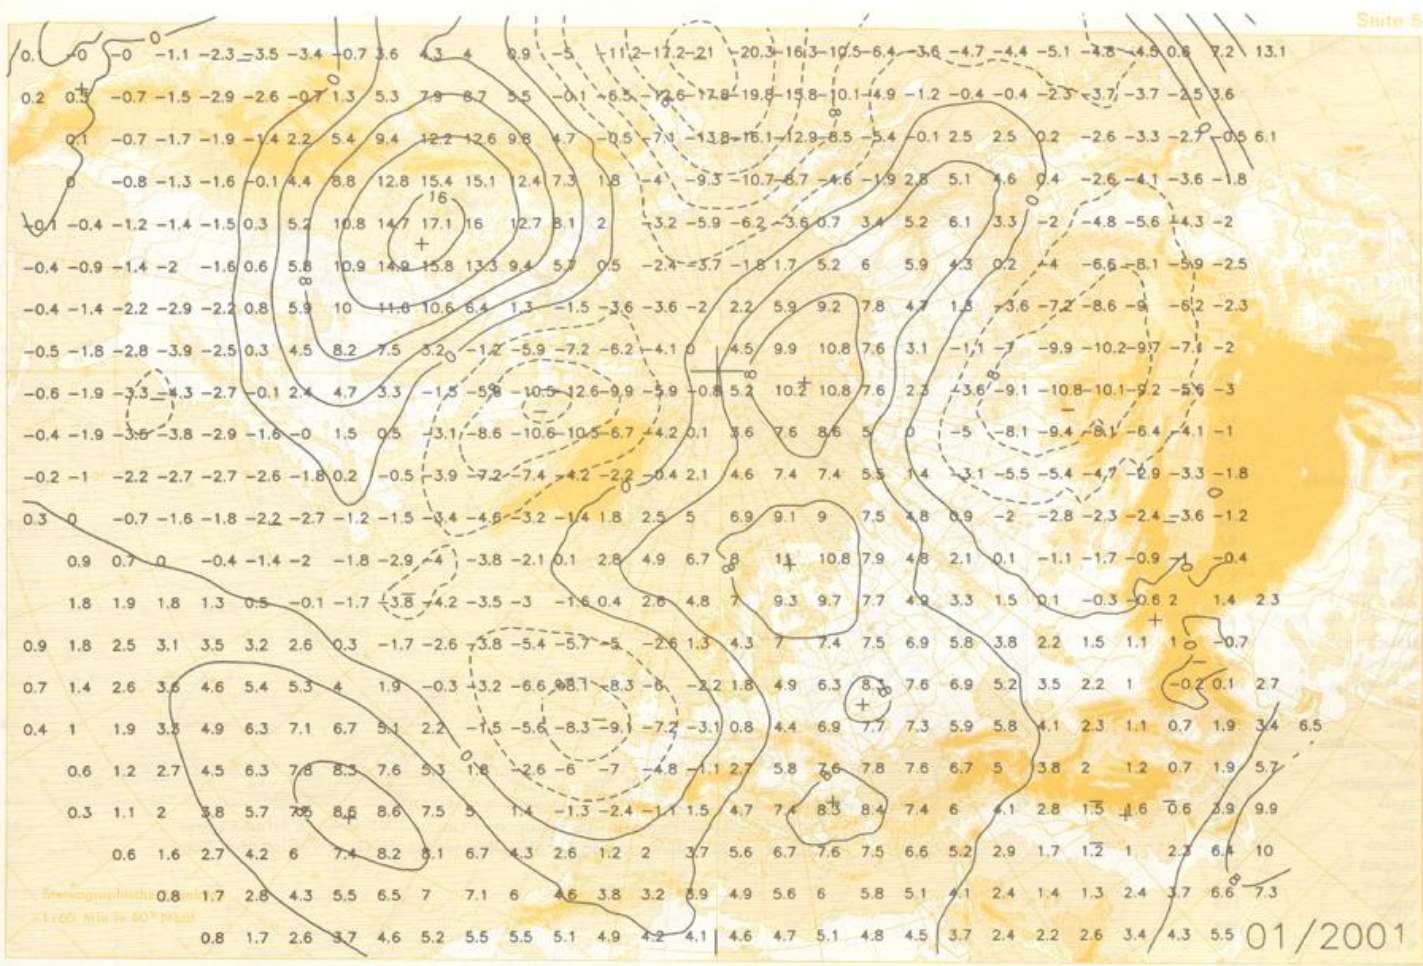 Seite 5
0.1 -0 -0 -1.1 -2.3 -3.5 -3.4 -0.7 3.6 4.3 4 0.9 -5 -11.2 -17.2 -21 -20.3 -16.3 -10.5 -6.4 -3.6 -4.7 -4.4 -5.1 -4.8 -4.5 0.6 7.2 13.1
0.2 0.5 -0.7 -1.5 -2.9 -2.6 -0.7 1.3 5.3 7.9 8.7 5.5 -0.1 -6.5 -12.6 -17.8 -19.8 -15.8 -10.1 -4.9 -1.2 -0.4 -0.4 -2.3 -3.7 -3.7 -2.5 3.6
0.1 -0.7 -1.7 -1.9 -1.4 2.2 5.4 9.4 12.2 12.6 9.8 4.7 -0.5 -7.1 -13.8 -16.1 -12.9 -8.5 -5.4 -0.1 2.5 2.5 0.2 -2.6 -3.3 -2.7 -0.5 6.1
0 -0.8 -1.3 -1.6 -0.1 4.4 8.8 12.8 15.4 15.1 12.4 7.3 1.8 -4 -9.3 -10.7 -8.7 -4.6 -1.9 2.8 5.1 4.6 0.4 -2.6 -4.1 -3.6 -1.8
-0.1 -0.4 -1.2 -1.4 -1.5 0.3 5.2 10.8 14.7 17.1 16 12.7 8.1 2 -3.2 -5.9 -6.2 -3.6 0.7 3.4 5.2 6.1 3.3 -2 -4.8 -5.6 -4.3 -2
-0.4 -0.9 -1.4 -2 -1.6 0.6 5.8 10.9 14.9 15.8 13.3 9.4 5.7 0.5 -2.4 -3.7 -1.8 1.7 5.2 6 5.9 4.3 0.2 -4 -6.6 -8.1 -5.9 -2.5
-0.4 -1.4 -2.2 -2.9 -2.2 0.8 5.9 10 11.6 10.6 6.4 1.3 -1.5 -3.6 -3.6 -2 2.2 5.9 9.2 7.8 4.7 1.3 -3.6 -7.2 -8.6 -9 -6.2 -2.3
-0.5 -1.8 -2.8 -3.9 -2.5 0.3 4.5 8.2 7.5 3.2 -1.2 -5.9 -7.2 -6.2 -4.1 0 4.5 9.9 10.8 7.6 3.1 -1.1 -7 -9.9 -10.2 -9.7 -7.1 -2
-0.6 -1.9 -3.3 -4.3 -2.7 -0.1 2.4 4.7 3.3 -1.5 -5.8 -10.5 -12.6 -9.9 -5.9 -0.8 5.2 10.2 10.8 7.6 2.3 -3.6 -9.1 -10.8 -10.1 -9.2 -5.6 -3
-0.4 -1.9 -3.5 -3.8 -2.9 -1.6 -0 1.5 0.5 -3.1 -8.6 -10.6 -10.5 -6.7 -4.2 0.1 3.6 7.6 8.6 5 0 -5 -8.1 -9.4 -8.1 -6.4 -4.1 -1
-0.2 -1 -2.2 -2.7 -2.7 -2.6 -1.8 0.2 -0.5 -3.9 -7.2 -7.4 -4.2 -2.2 -0.4 2.1 4.6 7.4 7.4 5.5 1.4 -3.1 -5.5 -5.4 -4.7 -2.9 -3.3 -1.8
0.3 0 -0.7 -1.6 -1.8 -2.2 -2.7 -1.2 -1.5 -3.4 -4.6 -3.2 -1.4 1.8 2.5 5 6.9 9.1 9 7.5 4.8 0.9 -2 -2.8 -2.3 -2.4 -3.6 -1.2
0.9 0.7 0 -0.4 -1.4 -2 -1.8 -2.9 -4 -3.8 -2.1 0.1 2.8 4.9 6.7 8 11 10.8 7.9 4.8 2.1 0.1 -1.1 -1.7 -0.9 -1 -0.4
1.8 1.9 1.8 1.3 0.5 -0.1 -1.7 -3.8 -4.2 -3.5 -3 -1.6 0.4 2.6 4.8 7 9.3 9.7 7.7 4.9 3.3 1.5 0.1 -0.3 -0.6 2 1.4 2.3
0.9 1.8 2.5 3.1 3.5 3.2 2.6 0.3 -1.7 -2.6 -3.8 -5.4 -5.7 -5 -2.6 1.3 4.3 7 7.4 7.5 6.9 5.8 3.8 2.2 1.5 1.1 1 -0.7
0.7 1.4 2.6 3.6 4.6 5.4 5.3 4 1.9 -0.3 -3.2 -6.6 -8.1 -8.3 -6 -2.2 1.8 4.9 6.3 8.3 7.6 6.9 5.2 3.5 2.2 1 -0.2 0.1 2.7
0.4 1 1.9 3.3 4.9 6.3 7.1 6.7 5.1 2.2 -1.5 -5.6 -8.3 -9.1 -7.2 -3.1 0.8 4.4 6.9 7.7 7.3 5.9 5.8 4.1 2.3 1.1 0.7 1.9 3.4 6.5
0.6 1.2 2.7 4.5 6.3 7.8 8.3 7.6 5.3 1.8 -2.6 -6 -7 -4.8 -1.1 2.7 5.8 7.6 7.8 7.6 6.7 5 3.8 2 1.2 0.7 1.9 5.7
0.3 1.1 2 3.8 5.7 7.5 8.6 8.6 7.5 5 1.4 -1.3 -2.4 -1.1 1.5 4.7 7.4 8.3 8.4 7.4 6 4.1 2.8 1.5 1.6 0.6 3.9 9.9
0.6 1.6 2.7 4.2 6 7.4 8.2 8.1 6.7 4.3 2.6 1.2 2 3.7 5.6 6.7 7.6 7.5 6.6 5.2 2.9 1.7 1.2 1 2.3 6.4 10
0.8 1.7 2.8 4.3 5.5 6.5 7 7.1 6 4.6 3.8 3.2 3.9 4.9 5.6 6 5.8 5.1 4.1 2.4 1.4 1.3 2.4 3.7 6.6 7.3
0.8 1.7 2.6 3.7 4.6 5.2 5.5 5.5 5.1 4.9 4.2 4.1 4.6 4.7 5.1 4.8 4.5 3.7 2.4 2.2 2.6 3.4 4.3 5.5
1:60 Mio in 60° Nord
01/2001